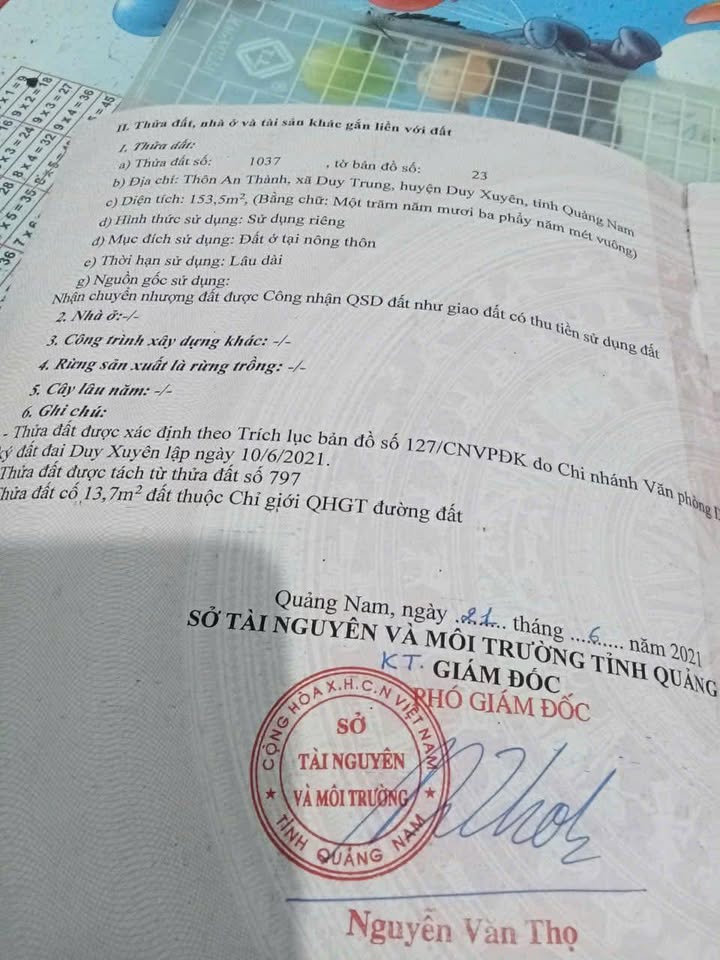 x 1 = 9
9 x 2 = 18
9 x 3 = 27
9 x 4 = 36
= 45
16
x 3 = 24
8 x 4 = 32
28
x 5 = 35
36
7 x 6
II. Thửa đất, nhà ở và tài sản khác gắn liền với đất
1. Thửa đất:
a) Thửa đất số: 1037 , tờ bản đồ số: 23
b) Địa chỉ: Thôn An Thành, xã Duy Trung, huyện Duy Xuyên, tỉnh Quảng Nam
c) Diện tích: 153,5m², (Bằng chữ: Một trăm năm mươi ba phẩy năm mét vuông)
d) Hình thức sử dụng: Sử dụng riêng
đ) Mục đích sử dụng: Đất ở tại nông thôn
e) Thời hạn sử dụng: Lâu dài
g) Nguồn gốc sử dụng:
Nhận chuyển nhượng đất được Công nhận QSD đất như giao đất có thu tiền sử dụng đất
2. Nhà ở:-/-
3. Công trình xây dựng khác: -/-
4. Rừng sản xuất là rừng trồng: -/-
5. Cây lâu năm: -/-
6. Ghi chú:
- Thửa đất được xác định theo Trích lục bản đồ số 127/CNVPĐK do Chi nhánh Văn phòng
ký đất đai Duy Xuyên lập ngày 10/6/2021.
Thửa đất được tách từ thửa đất số 797
Thửa đất có 13,7m² đất thuộc Chỉ giới QHGT đường đất
Quảng Nam, ngày 21 tháng 6 năm 2021
SỞ TÀI NGUYÊN VÀ MÔI TRƯỜNG TỈNH QUẢNG
KT. GIÁM ĐỐC
PHÓ GIÁM ĐỐC
CỘNG HÒA X.H.C.N VIỆT NAM
SỞ
TÀI NGUYÊN
VÀ MÔI TRƯỜNG
TỈNH QUẢNG NAM
Nguyễn Văn Thọ